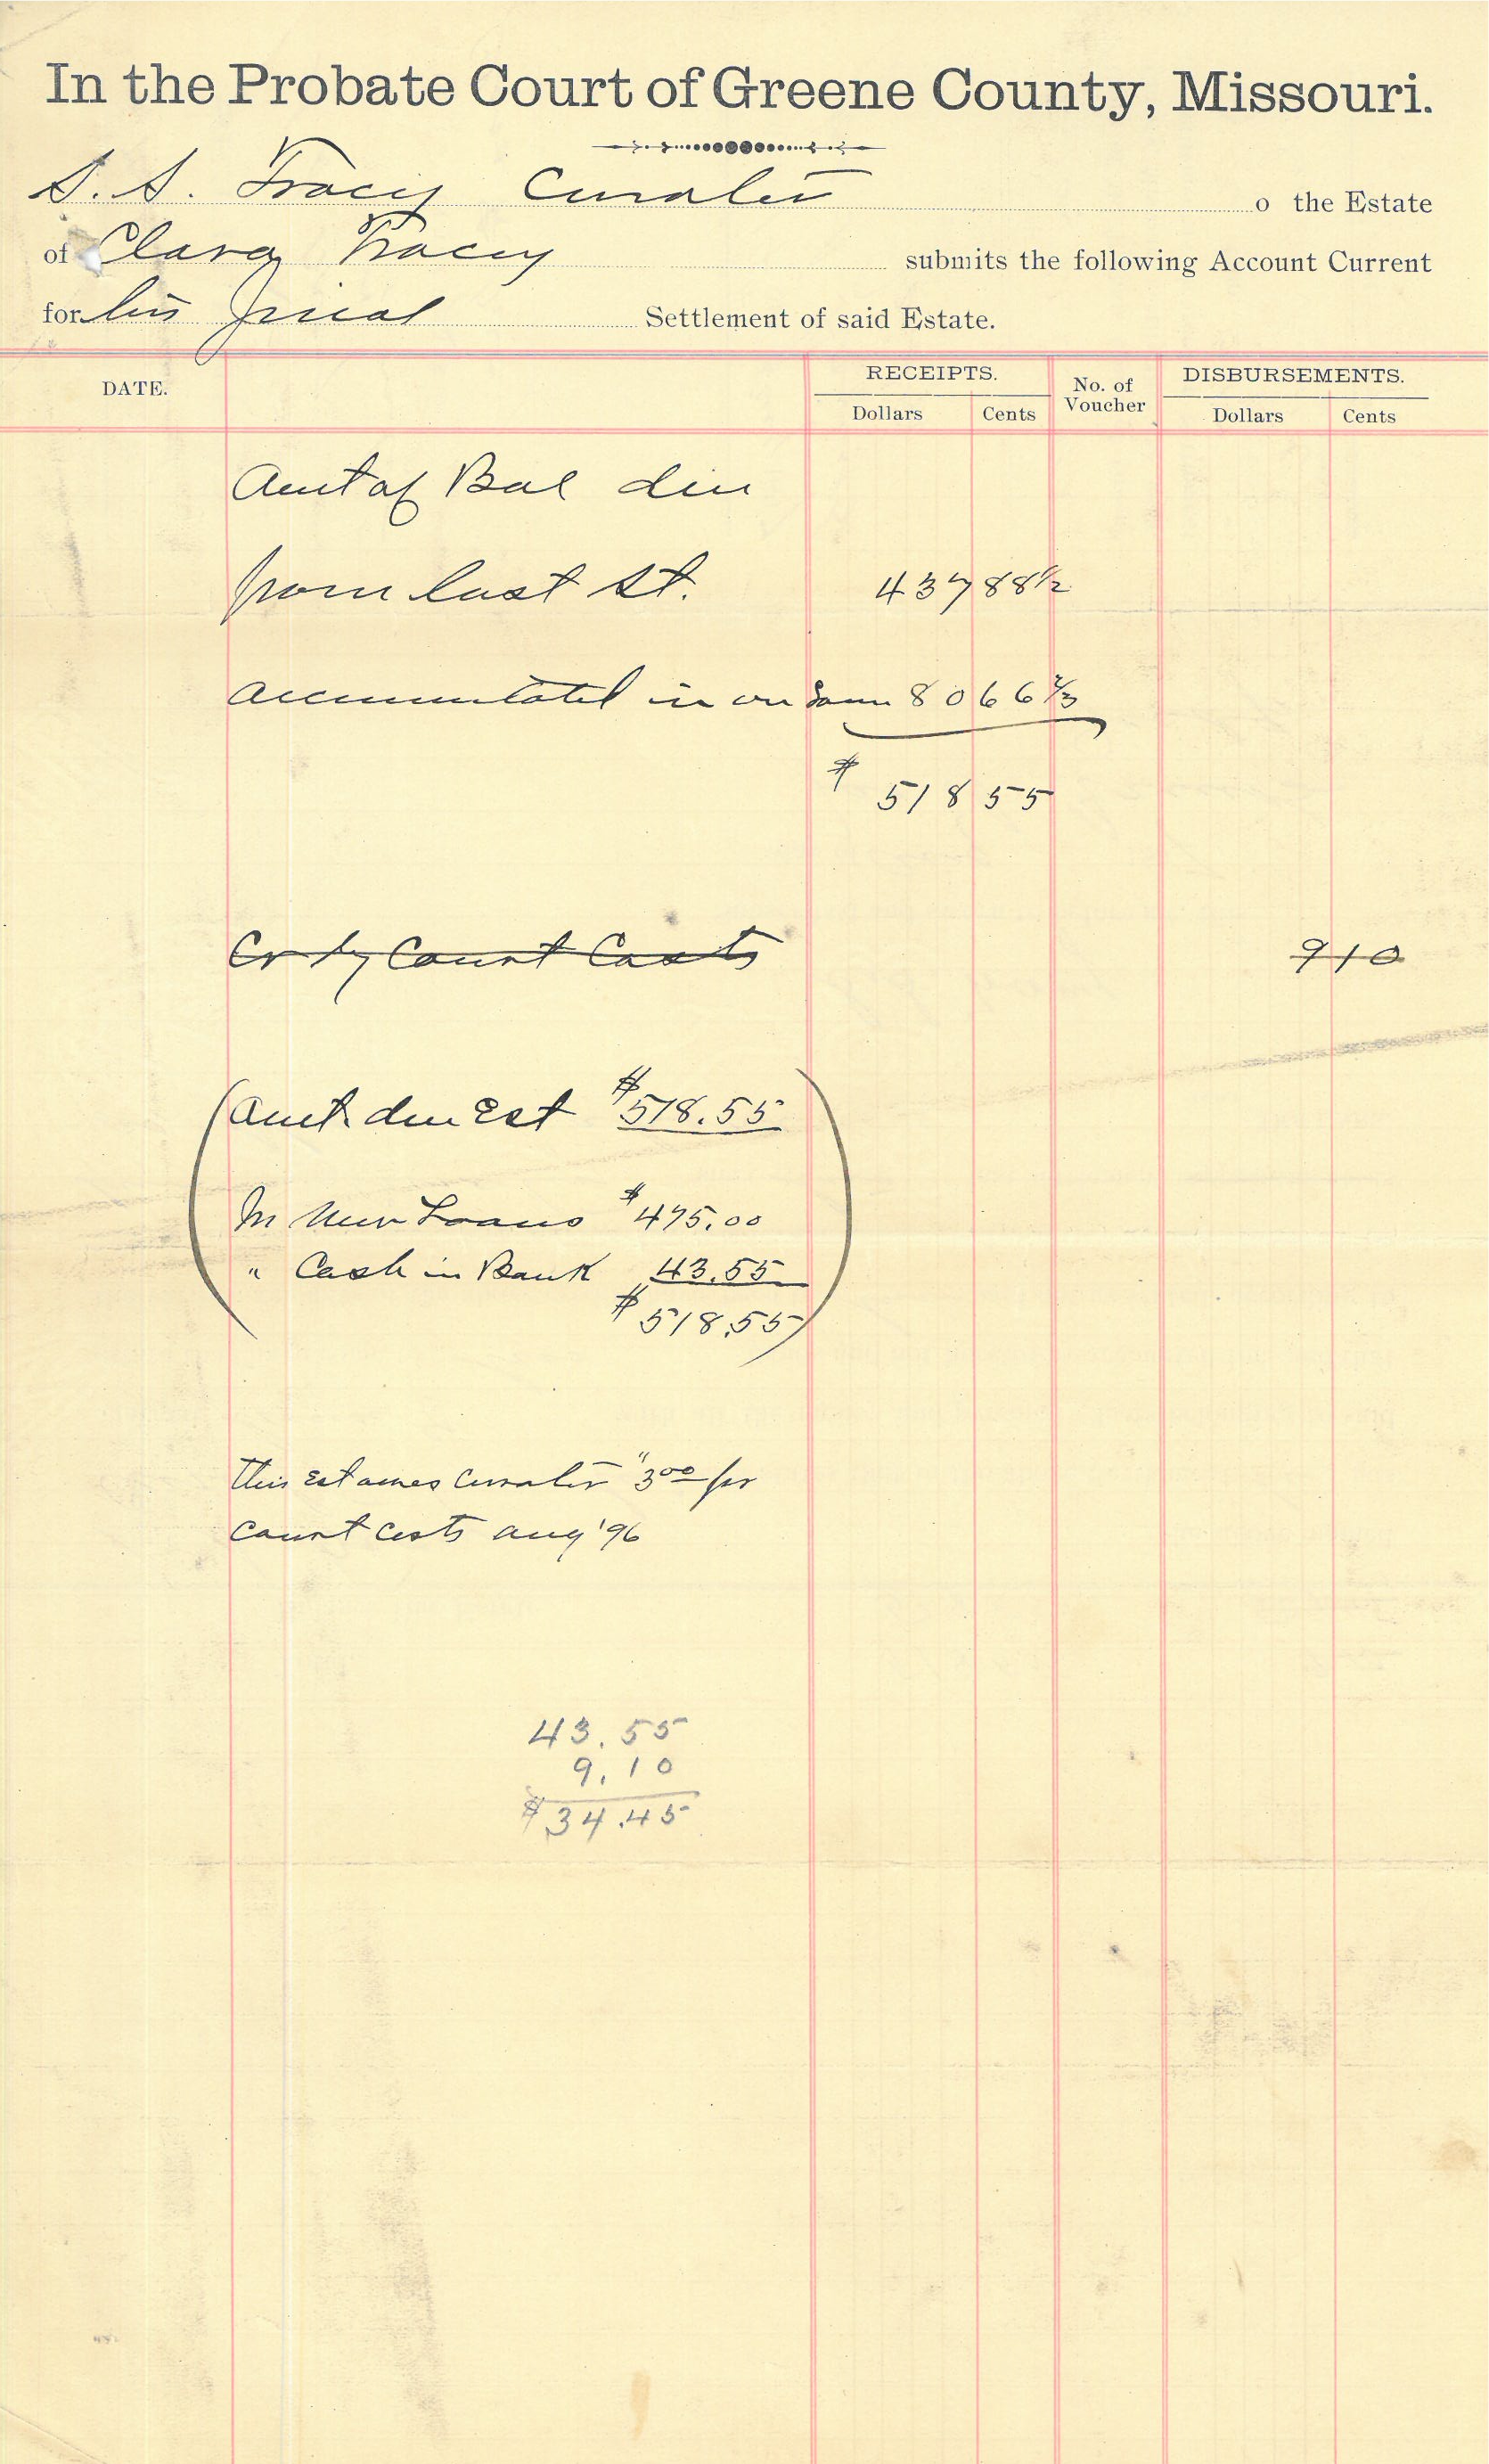 In the Probate Court of Greene County, Missouri.
S. S. Tracy Curator o the Estate
of Clara Tracy submits the following Account Current
for his final Settlement of said Estate.
DATE. RECEIPTS. No. of Voucher DISBURSEMENTS.
Dollars Cents Dollars Cents
Amt of Bal due
from last St. 437 88 1/2
accumulated in on Same 80 66 2/3
$ 518 55
Cr by Court Costs 9 10
(Amt due Est $518.55
In New Loans $475.00
" Cash in Bank 43.55
$518.55)
This Est owes Curator $3 00 for
Court Costs Aug '96
43.55
9.10
$34.45